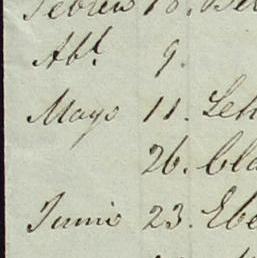 Febrero 18.
Abl. 9.
Mayo 11. Leh
26. Cla
Junio 23. Ebe